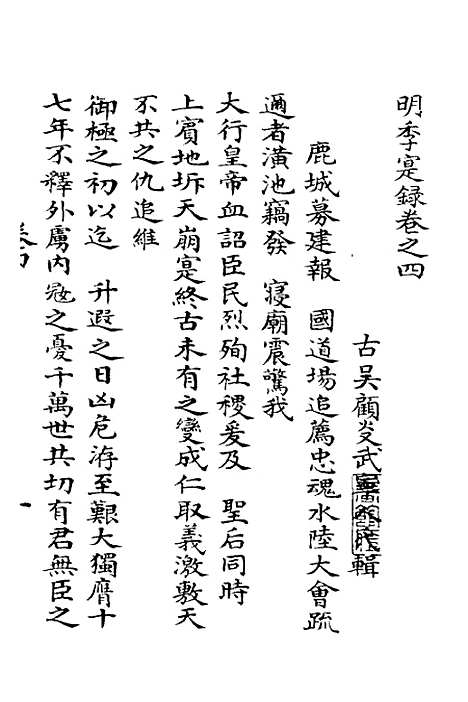 明季寔録卷之四
古吴顧炎武輯
鹿城募建報　國道塲追薦忠魂水陸大會疏
邇者潢池竊發　寝廟震驚我
大行皇帝血詔臣民烈殉社稷爰及　聖后同時
上賔地坼天崩寔終古未有之變成仁取義激敷天
不共之仇追維
御極之初以迄　升遐之日凶危洊至艱大獨膺十
七年不釋外虜内寇之憂千萬世共切有君無臣之
卷四　一